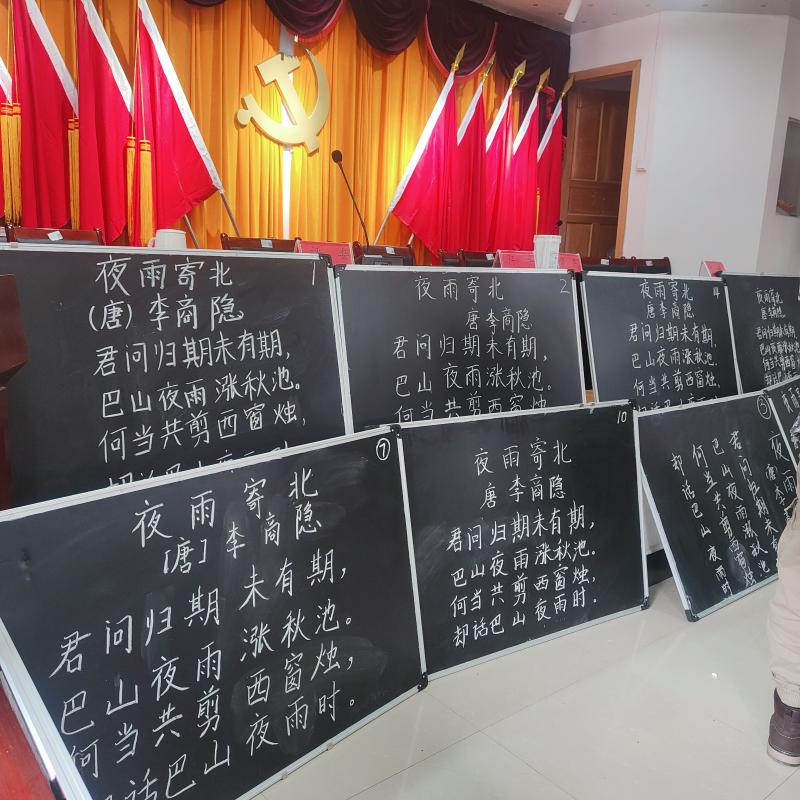 夜雨寄北
1
(唐)李商隐
君问归期未有期,
巴山夜雨涨秋池。
何当共剪西窗烛,
夜雨寄北
2
唐李商隐
君问归期未有期,
巴山夜雨涨秋池。
何当共剪西窗烛,
夜雨寄北
唐李商隐
君问归期未有期,
巴山夜雨涨秋池。
何当共剪西窗烛,
夜雨寄北
君问归期未有期
巴山夜雨涨秋池
⑦
夜雨寄北
[唐]李商隐
君问归期未有期,
巴山夜雨涨秋池。
何当共剪西窗烛,
却话巴山夜雨时。
10
夜雨寄北
唐李商隐
君问归期未有期,
巴山夜雨涨秋池。
何当共剪西窗烛,
却话巴山夜雨时.
⑤
君问归期未有期
巴山夜雨涨秋池
何当共剪西窗烛
却话巴山夜雨时